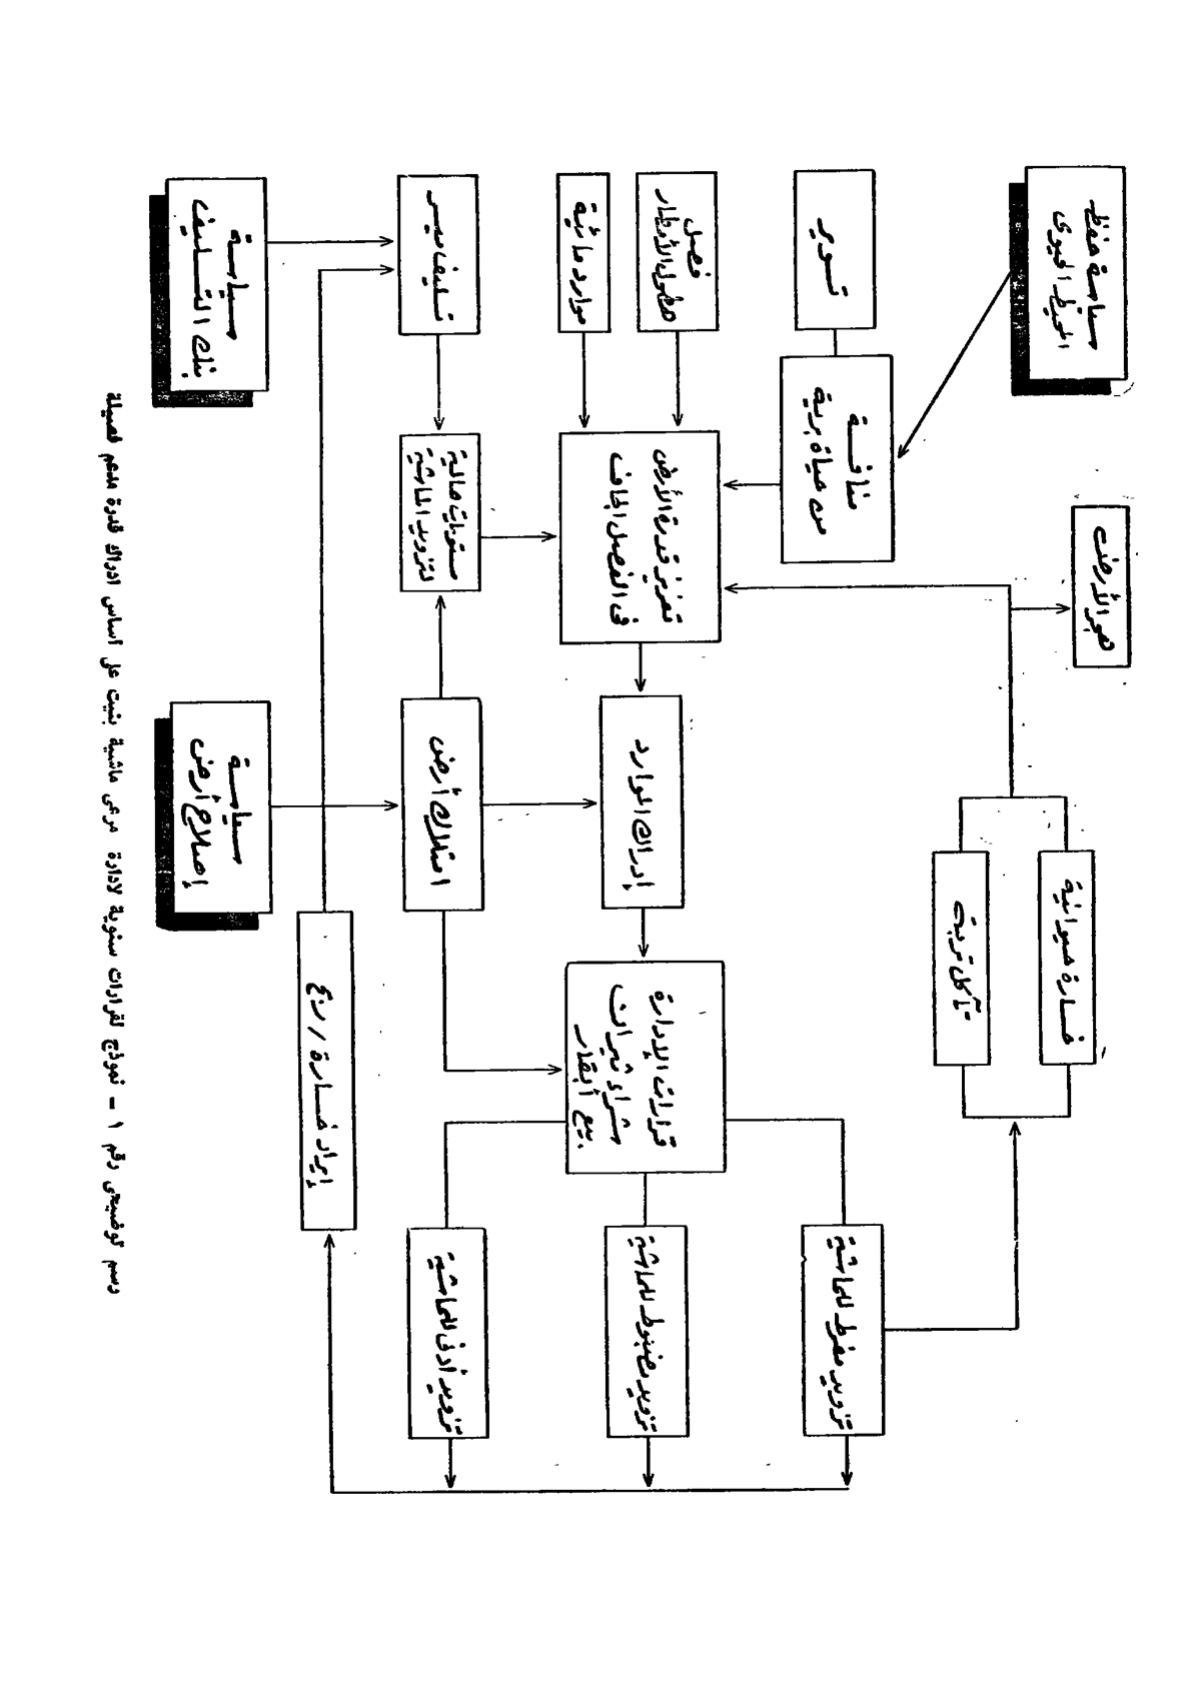 سياسة حفظ
المحيط الحيوى
هجر الأرض
خسارة حيوانية
تآكل تربة
تسوير
منافسة
من حياة برية
تزويد مفرط للماشية
فصل
هطول الأمطار
موارد مائية
تعزيز قدرة الأرض
فى الفصل الجاف
إدراك الموارد
قرارات الإدارة
شراء ثيران
بيع أبقار
تزويد مضبوط للماشية
مستويات حالة
لتزويد الماشية
امتلاك أرض
تزويد أدنى للماشية
إيراد خسارة / ربح
سياسة
بنك التسليف
سياسة
إصلاح أرض
رسم توضيحى رقم ١ – نموذج لقرارات سنوية لادارة مرعى ماشية بنيت على أساس ادراك قدرة مدعم فصيلة